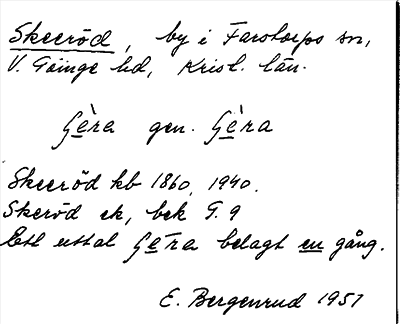 Skeeröd, by i Farstorps sn,
V. Göinge hd, Krist. län.
gen.
Skeeröd kb 1860, 1940.
Skeröd ek, bek G. 9
Ett uttal belagt en gång.
E. Bergenrud 1951